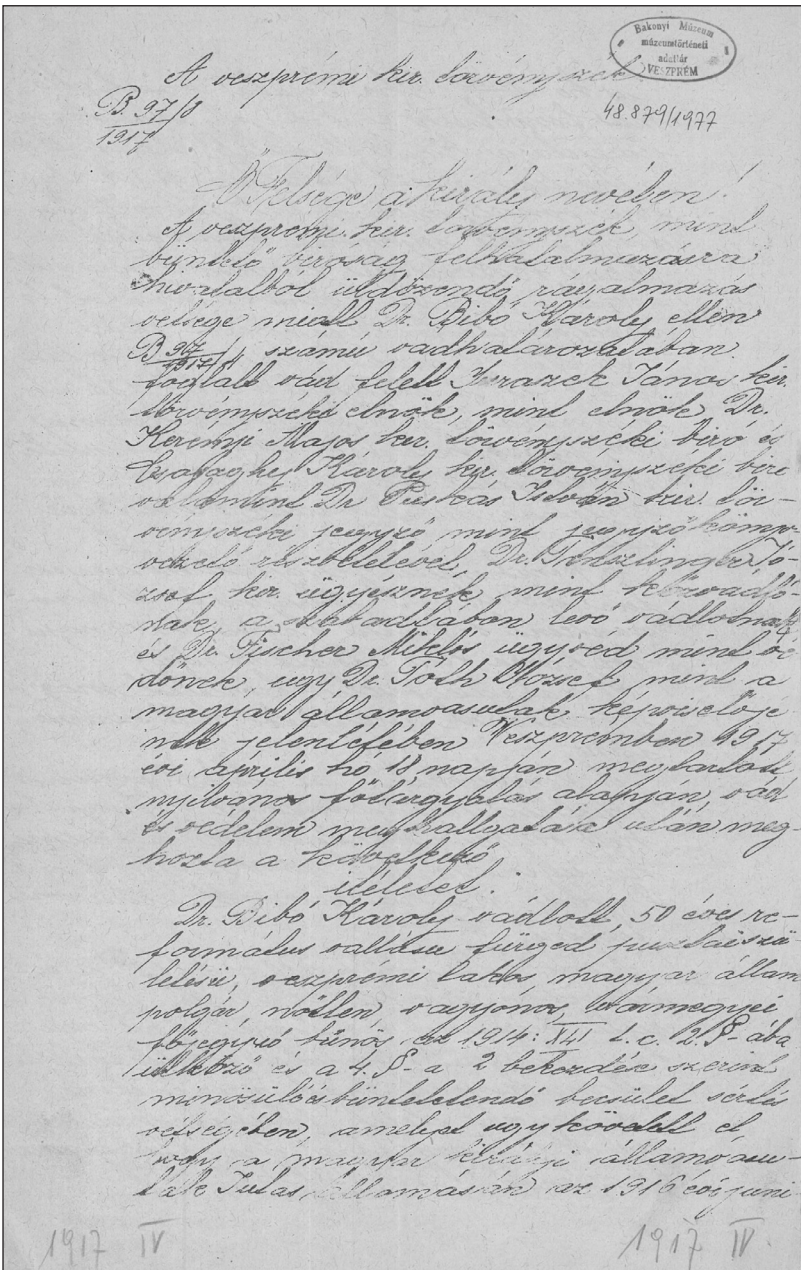 Bakonyi Múzeum
múzeumtörténeti
adattár
VESZPRÉM
A veszprémi kir. törvényszék.
B. 97/8
1917
48.879/1977
Ő Felsége a király nevében!
A veszprémi kir. törvényszék, mint
büntető biróság felhatalmazásra
hivatalból üldözendő rágalmazás
vétsége miatt Dr. Bibó Károly ellen
B 97/1917 számú vádhatározatában
foglalt vád felett János kir.
törvényszéki elnök, mint elnök Dr.
Lajos kir. törvényszéki biró és
Károly kir. törvényszéki biró
valamint Dr Puskás István kir. tör-
vényszéki jegyző mint jegyzőköny-
vezető részvételével, Dr. Jó-
zsef kir. ügyésznek mint közvádló-
nak, a szabadlábon levő vádlottnak
és Dr. Fischer Miklós ügyvéd mint vé
dőnek, ugy Dr. Tóth József mint a
magyar államvasutak képviselője
nek jelenlétében Veszprémben 1917
évi április hó 18 napján megtartott
nyilvános főtárgyalás alapján, vád
és védelem meghallgatása után meg-
hozta a következő
itéletet.
Dr. Bibó Károly vádlott, 50 éves re-
formátus vallásu, füged pusztai szü-
letésü, veszprémi lakos, magyar állam
polgár, nőtlen, vagyonos, vármegyei
főjegyző bűnös az 1914: XLI t. c. 2. §-ába
ütköző és a 4. §-a 2 bekezdése szerint
minősülő és büntetendő becsület sértés
vétségében, amelyet ugy követett el
hogy a magyar királyi államvasu-
tak Jutas állomásán az 1916 évi juni-
1917 IV
1917 IV.